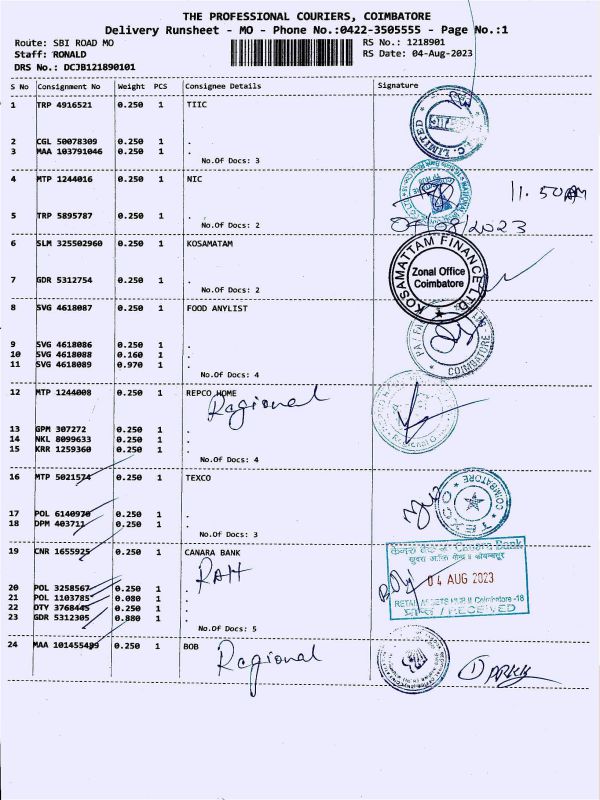 THE PROFESSIONAL COURIERS, COIMBATORE
Delivery Runsheet - MO - Phone No.:0422-3505555 - Page No.:1
Route: SBI ROAD MO
RS No.: 1218901
Staff: RONALD
RS Date: 04-Aug-2023
DRS No.: DCJB121890101
S No Consignment No Weight PCS Consignee Details Signature
1 TRP 4916521 0.250 1 TIIC
2 CGL 50078309 0.250 1 .
3 MAA 103791046 0.250 1 .
No.Of Docs: 3
C. LIMITED
4 MTP 1244016 0.250 1 NIC
11.50 AM
5 TRP 5895787 0.250 1 .
No.Of Docs: 2
04/08/2023
6 SLM 325502960 0.250 1 KOSAMATAM
KOSAMATTAM FINANCE LTD.
Zonal Office
Coimbatore
7 GDR 5312754 0.250 1 .
No.Of Docs: 2
8 SVG 4618087 0.250 1 FOOD ANYLIST
9 SVG 4618086 0.250 1 .
10 SVG 4618088 0.160 1 .
11 SVG 4618089 0.970 1 .
No.Of Docs: 4
COIMBATORE
12 MTP 1244008 0.250 1 REPCO HOME
Regional
13 GPM 307272 0.250 1 .
14 NKL 8099633 0.250 1 .
15 KRR 1259360 0.250 1 .
No.Of Docs: 4
16 MTP 5021574 0.250 1 TEXCO
COIMBATORE
TEXCO
17 POL 6140970 0.250 1 .
18 DPM 403711 0.250 1 .
No.Of Docs: 3
19 CNR 1655925 0.250 1 CANARA BANK
RAH
केनरा बैंक Canara Bank
04 AUG 2023
RETAIL ASSETS HUB II Coimbatore -18
प्राप्त / RECEIVED
20 POL 3258567 0.250 1 .
21 POL 1103785 0.080 1 .
22 OTY 3768445 0.250 1 .
23 GDR 5312305 0.880 1 .
No.Of Docs: 5
24 MAA 101455499 0.250 1 BOB
Regional